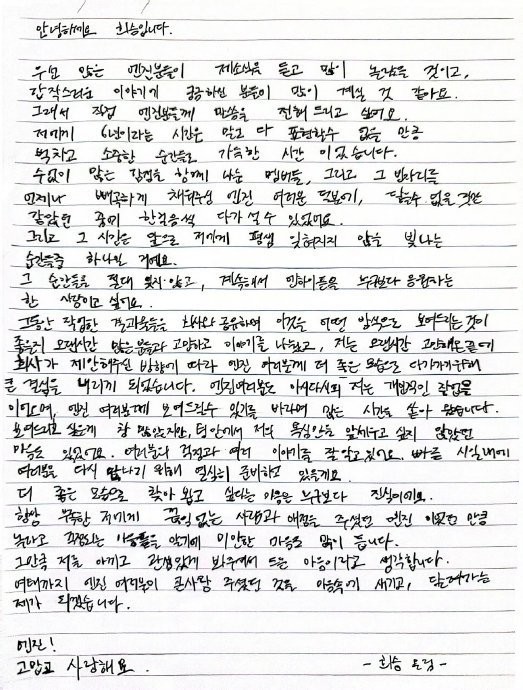 안녕하세요 희승입니다.
우선 많은 엔진분들이 제소식을 듣고 많이 놀랐을 것이고,
갑작스러운 이야기에 궁금하신 분들이 많이 계실 것 같아요.
그래서 직접 엔진분들께 말씀을 전해 드리고 싶어요.
저에게 6년이라는 시간은 말로 다 표현할수 없을 만큼
벅차고 소중한 순간들로 가득한 시간 이었습니다.
수없이 많은 감정을 함께 나눈 멤버들, 그리고 그 빈자리를
언제나 빼곡하게 채워주신 엔진 여러분 덕분에, 닿을수 없을 것만
같았던 꿈에 한걸음씩 다가 설 수 있었어요.
그리고 그 시간은 앞으로 저에게 평생 잊혀지지 않을 빛나는
순간들중 하나일 거예요.
그 순간들을 절대 잊지 않고, 계속해서 엔하이픈을 누구보다 응원하는
한 사람이고 싶어요.
그동안 작업한 결과물들을 회사와 공유하며 이것을 어떤 방식으로 보여드리는것이
좋을지 오랜시간 많은분들과 고민하고 이야기를 나눴고, 저는 오랜시간 고민해본끝에
회사가 제안해주신 방향에 따라 엔진 여러분께 더 좋은 모습으로 다가가기위해
큰 결심을 내리게 되었습니다. 엔진여러분도 아시다시피 저는 개인적인 작업을
이어오며, 엔진 여러분께 보여드릴수 있기를 바라며 많은 시간을 쏟아 왔습니다.
보여드리고 싶은게 참 많았지만, 팀 안에서 저의 욕심만을 앞세우고 싶지 않았던
마음도 있었어요. 여러분의 걱정과 여러 이야기를 잘 알고 있어요. 빠른 시일내에
여러분을 다시 만나기 위해 열심히 준비하고 있을게요.
더 좋은 모습으로 찾아 뵙고 싶다는 마음은 누구보다 진심이에요.
항상 부족한 저에게 끝없 없는 사랑과 애정을 주셨던 엔진 이었던 만큼
놀라고 걱정되는 마음들을 알기에 미안한 마음도 많이 듭니다.
그만큼 저를 아끼고 관심있게 봐주셔서 드는 마음이라고 생각합니다.
여태까지 엔진 여러분이 큰사랑 주셨던 것을 마음속에 새기고, 달려가는
제가 되겠습니다.
엔진!
고맙고 사랑해요. - 희승 드림 -